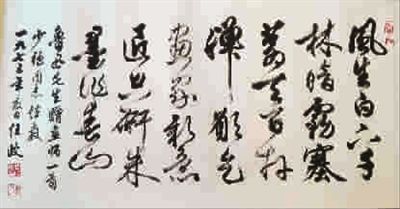 風生白下千
林暗霧塞
蒼天百卉
殫願乞
畫家新意
匠只研朱
墨作春山
魯迅先生贈畫師一首
少同志
一九七三年春日任政